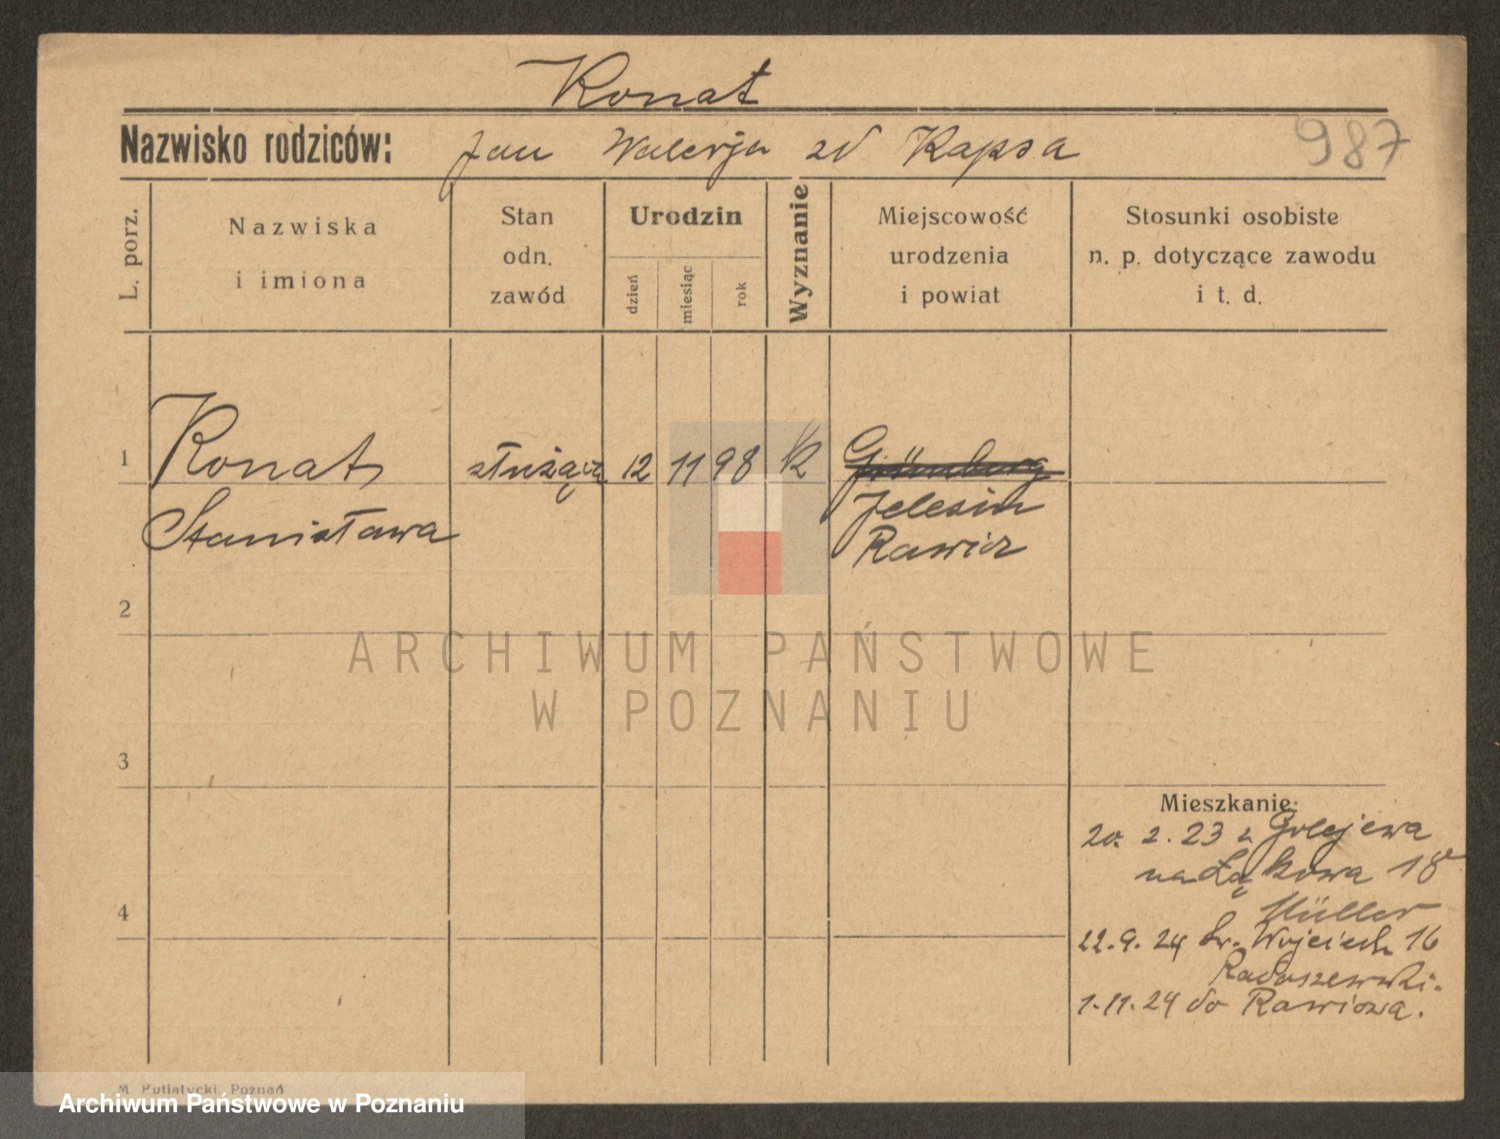 Konat
Nazwisko rodziców: Jan Walerja zd Kapsa 987
L. porz.
Nazwiska
i imiona
Stan
odn.
zawód
Urodzin
dzień
miesiąc
rok
Wyznanie
Miejscowość
urodzenia
i powiat
Stosunki osobiste
n. p. dotyczące zawodu
i t. d.
1 Konat służąca 12 11 98 k Grünberg
Stanisława Jelesin
Rawicz
2
ARCHIWUM PAŃSTWOWE
W POZNANIU
3
Mieszkanie:
20. 2. 23 z Golejewa
na Łąkowa 18
Müller
4
22. 9. 24 św. Wojciech 16
Radoszewski.
1. 11. 24 do Rawicza.
M. Putiatycki, Poznań
Archiwum Państwowe w Poznaniu